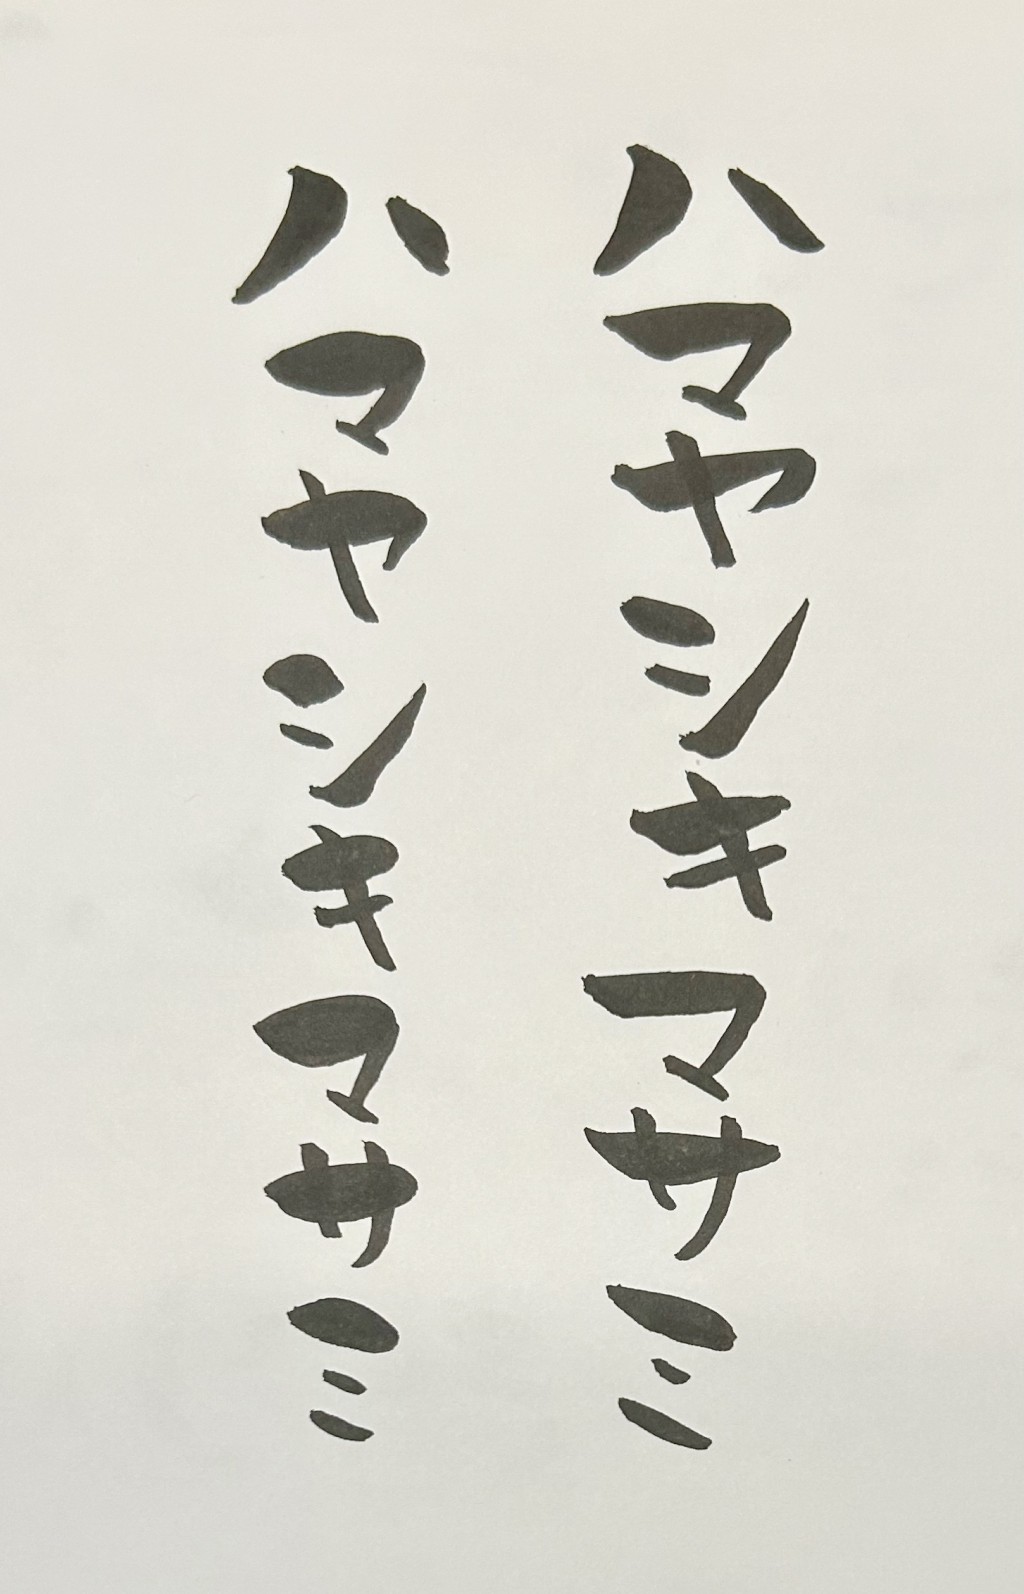 ハマヤシキマサミ
ハマヤシキマサミ